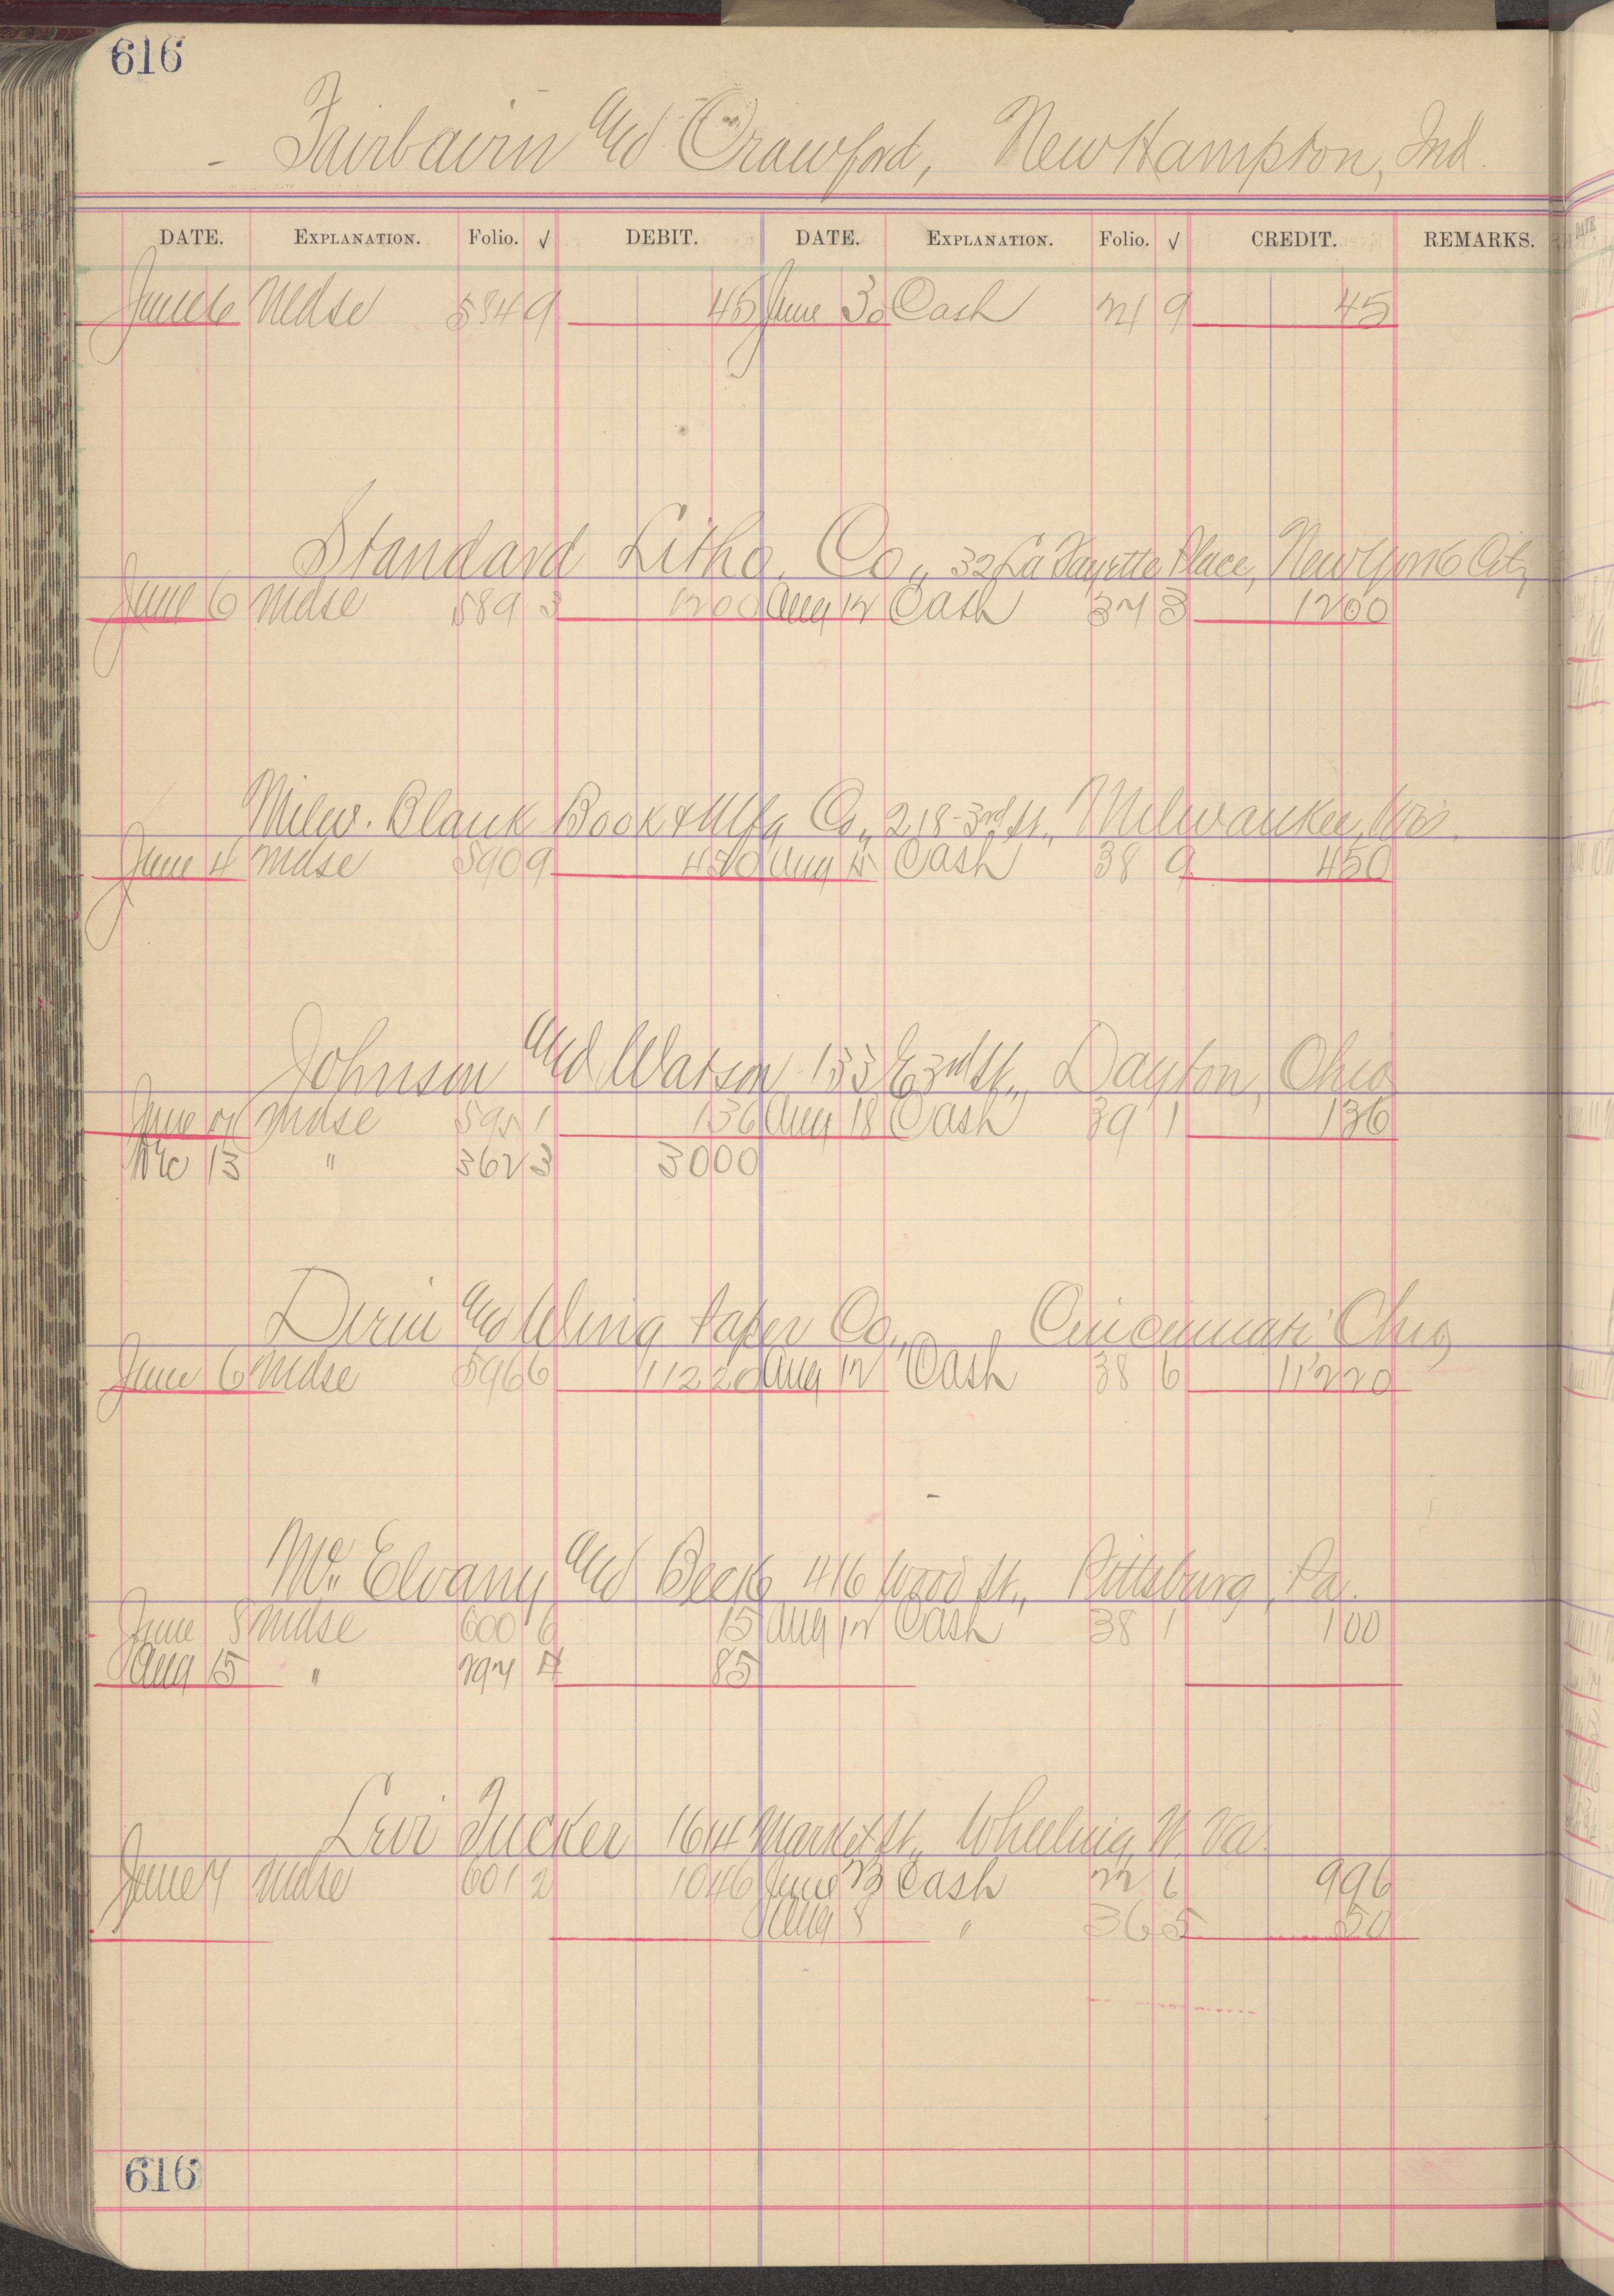 616
Fairbairn And Crawford, New Hampton, Ind.
DATE. EXPLANATION. Folio. √ DEBIT. DATE. EXPLANATION. Folio. √ CREDIT. REMARKS.
June 6 Mdse 584 9 45 June 30 Cash 9 45
Standard Litho. Co., 32 La Fayette Place, New York City
June 6 Mdse 589 3 1200 Aug 12 Cash 37 3 1200
Milw. Blank Book & Mfg Co., 218-3rd St., Milwaukee, Wis.
June 4 Mdse 590 9 450 Aug 15 Cash 38 9 450
Johnson And Watson 133 E 3rd St., Dayton, Ohio
June Mdse 595 1 136 Aug 18 Cash 39 1 136
Dec 13 " 362 3 3000
And Wing Paper Co., Cincinnati Ohio
June 6 Mdse 596 6 11220 Aug 12 Cash 38 6 11220
Mc. Elvany And Beck 416 Wood St., Pittsburg, Pa.
June 8 Mdse 600 6 15 Aug 12 Cash 38 1 100
Aug 15 " 85
Levi Tucker 1614 Market St., Wheeling, W. Va.
June 7 Mdse 601 2 1046 June 23 Cash 22 6 996
Aug 8 " 36 5 50
616